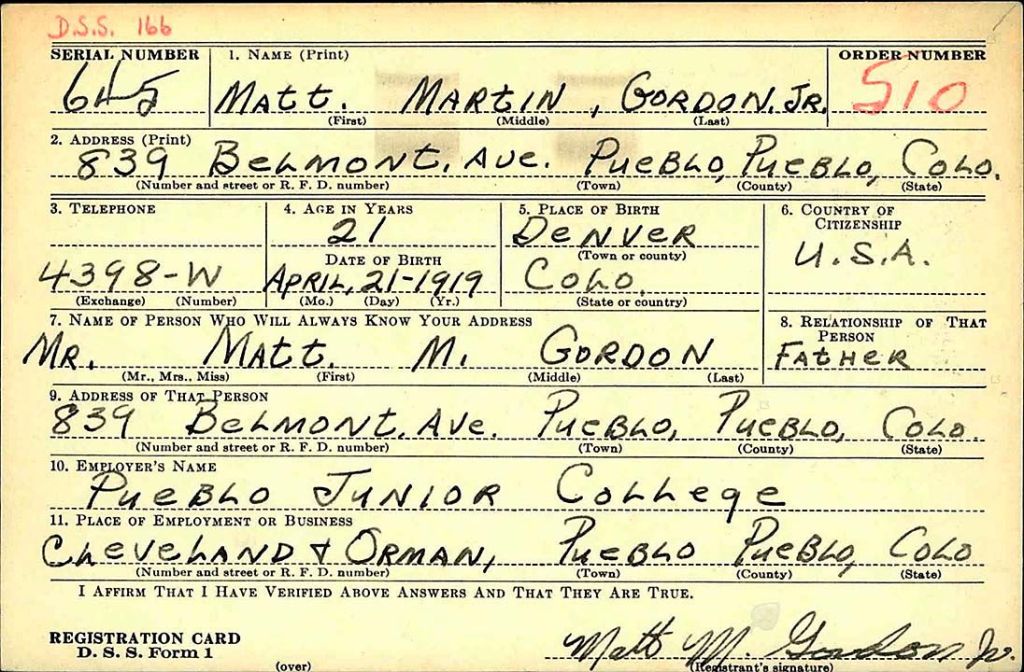 D.S.S. 166
SERIAL NUMBER 1. NAME (Print) ORDER NUMBER
645 MATT. MARTIN, GORDON. JR. 510
(First) (Middle) (Last)
2. ADDRESS (Print)
839 BELMONT. AVE. PUEBLO, PUEBLO, COLO.
(Number and street or R. F. D. number) (Town) (County) (State)
3. TELEPHONE 4. AGE IN YEARS 5. PLACE OF BIRTH 6. COUNTRY OF CITIZENSHIP
21 DENVER U.S.A.
DATE OF BIRTH (Town or county)
4398-W APRIL, 21-1919 COLO.
(Exchange) (Number) (Mo.) (Day) (Yr.) (State or country)
7. NAME OF PERSON WHO WILL ALWAYS KNOW YOUR ADDRESS 8. RELATIONSHIP OF THAT PERSON
MR. MATT. M. GORDON FATHER
(Mr., Mrs., Miss) (First) (Middle) (Last)
9. ADDRESS OF THAT PERSON
839 BELMONT. AVE. PUEBLO, PUEBLO, COLO.
(Number and street or R. F. D. number) (Town) (County) (State)
10. EMPLOYER'S NAME
PUEBLO JUNIOR COLLEGE
11. PLACE OF EMPLOYMENT OR BUSINESS
CLEVELAND & ORMAN, PUEBLO PUEBLO, COLO
(Number and street or R. F. D. number) (Town) (County) (State)
I AFFIRM THAT I HAVE VERIFIED ABOVE ANSWERS AND THAT THEY ARE TRUE.
REGISTRATION CARD
D. S. S. Form 1 Matt M. Gordon Jr.
(over) (Registrant's signature)